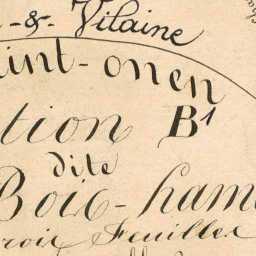 - & - Vilaine
int-onen
tion B¹
dite
Bois-hamo
rois Feuilles